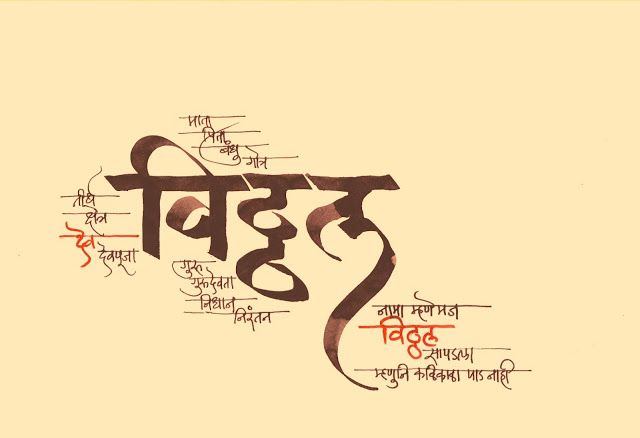 माता
पिता
बंधु
गोत्र
विठ्ठल
तीर्थ
क्षेत्र
देव
देवपूजा
गुरु
गुरुदेवता
निधान
निरंतन
नामा म्हणे मज
विठ्ठल
सापडला
म्हणुनि कळिकाळा पाड नाही